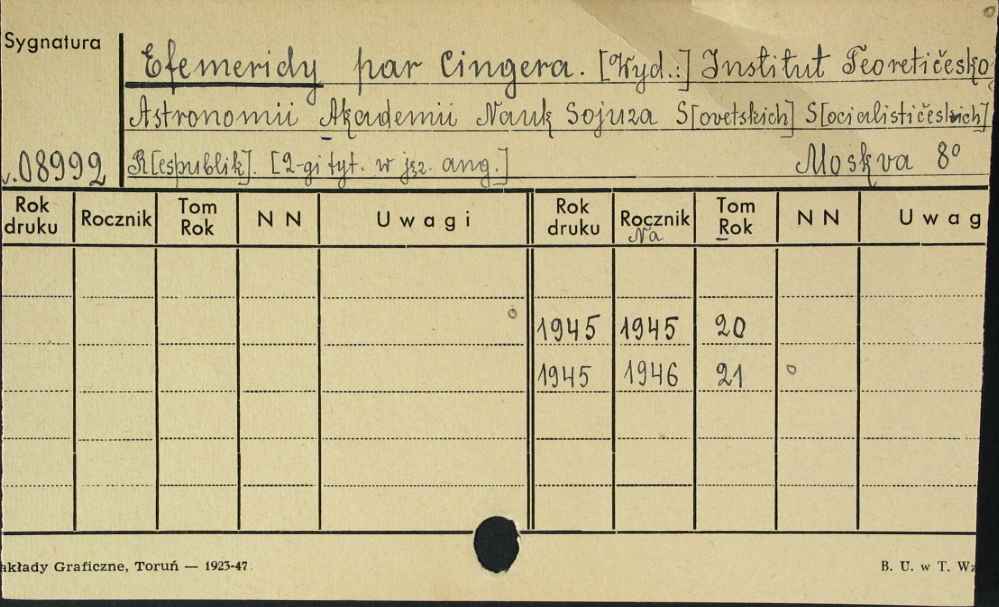 Sygnatura
Efemeridy par Cingera. [Wyd.:] Institut Teoretičesko
Astronomii Akademii Nauk Sojuza S[ovetskich] S[ocialističeskich]
08992 R[espublik]. [2-gi tyt. w jęz. ang.] Moskva 8°
Rok druku Rocznik Tom Rok N N Uwagi Rok druku Rocznik Tom Rok N N Uwag
Na
1945 1945 20
1945 1946 21
akłady Graficzne, Toruń — 1923-47 B. U. w T. Wz